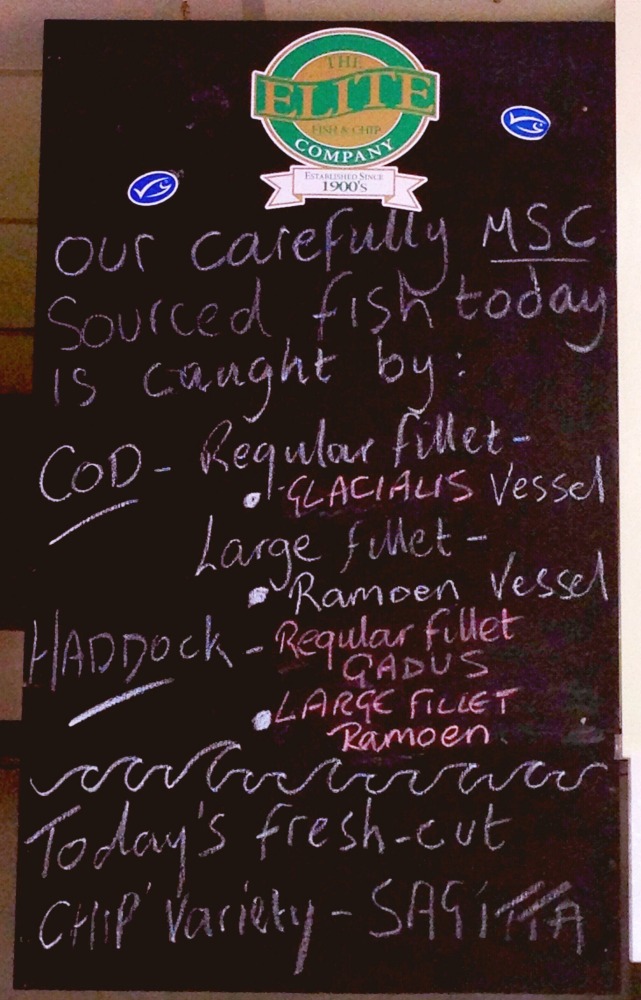 THE
ELITE
FISH & CHIP
COMPANY
ESTABLISHED SINCE
1900's
our carefully MSC
Sourced fish today
is caught by:
COD - Regular fillet -
• GLACIALIS Vessel
Large fillet -
• Ramoen Vessel
HADDOCK - Regular fillet
GADUS
• LARGE FILLET
Ramoen
Today's fresh-cut
CHIP Variety - SAGITTA